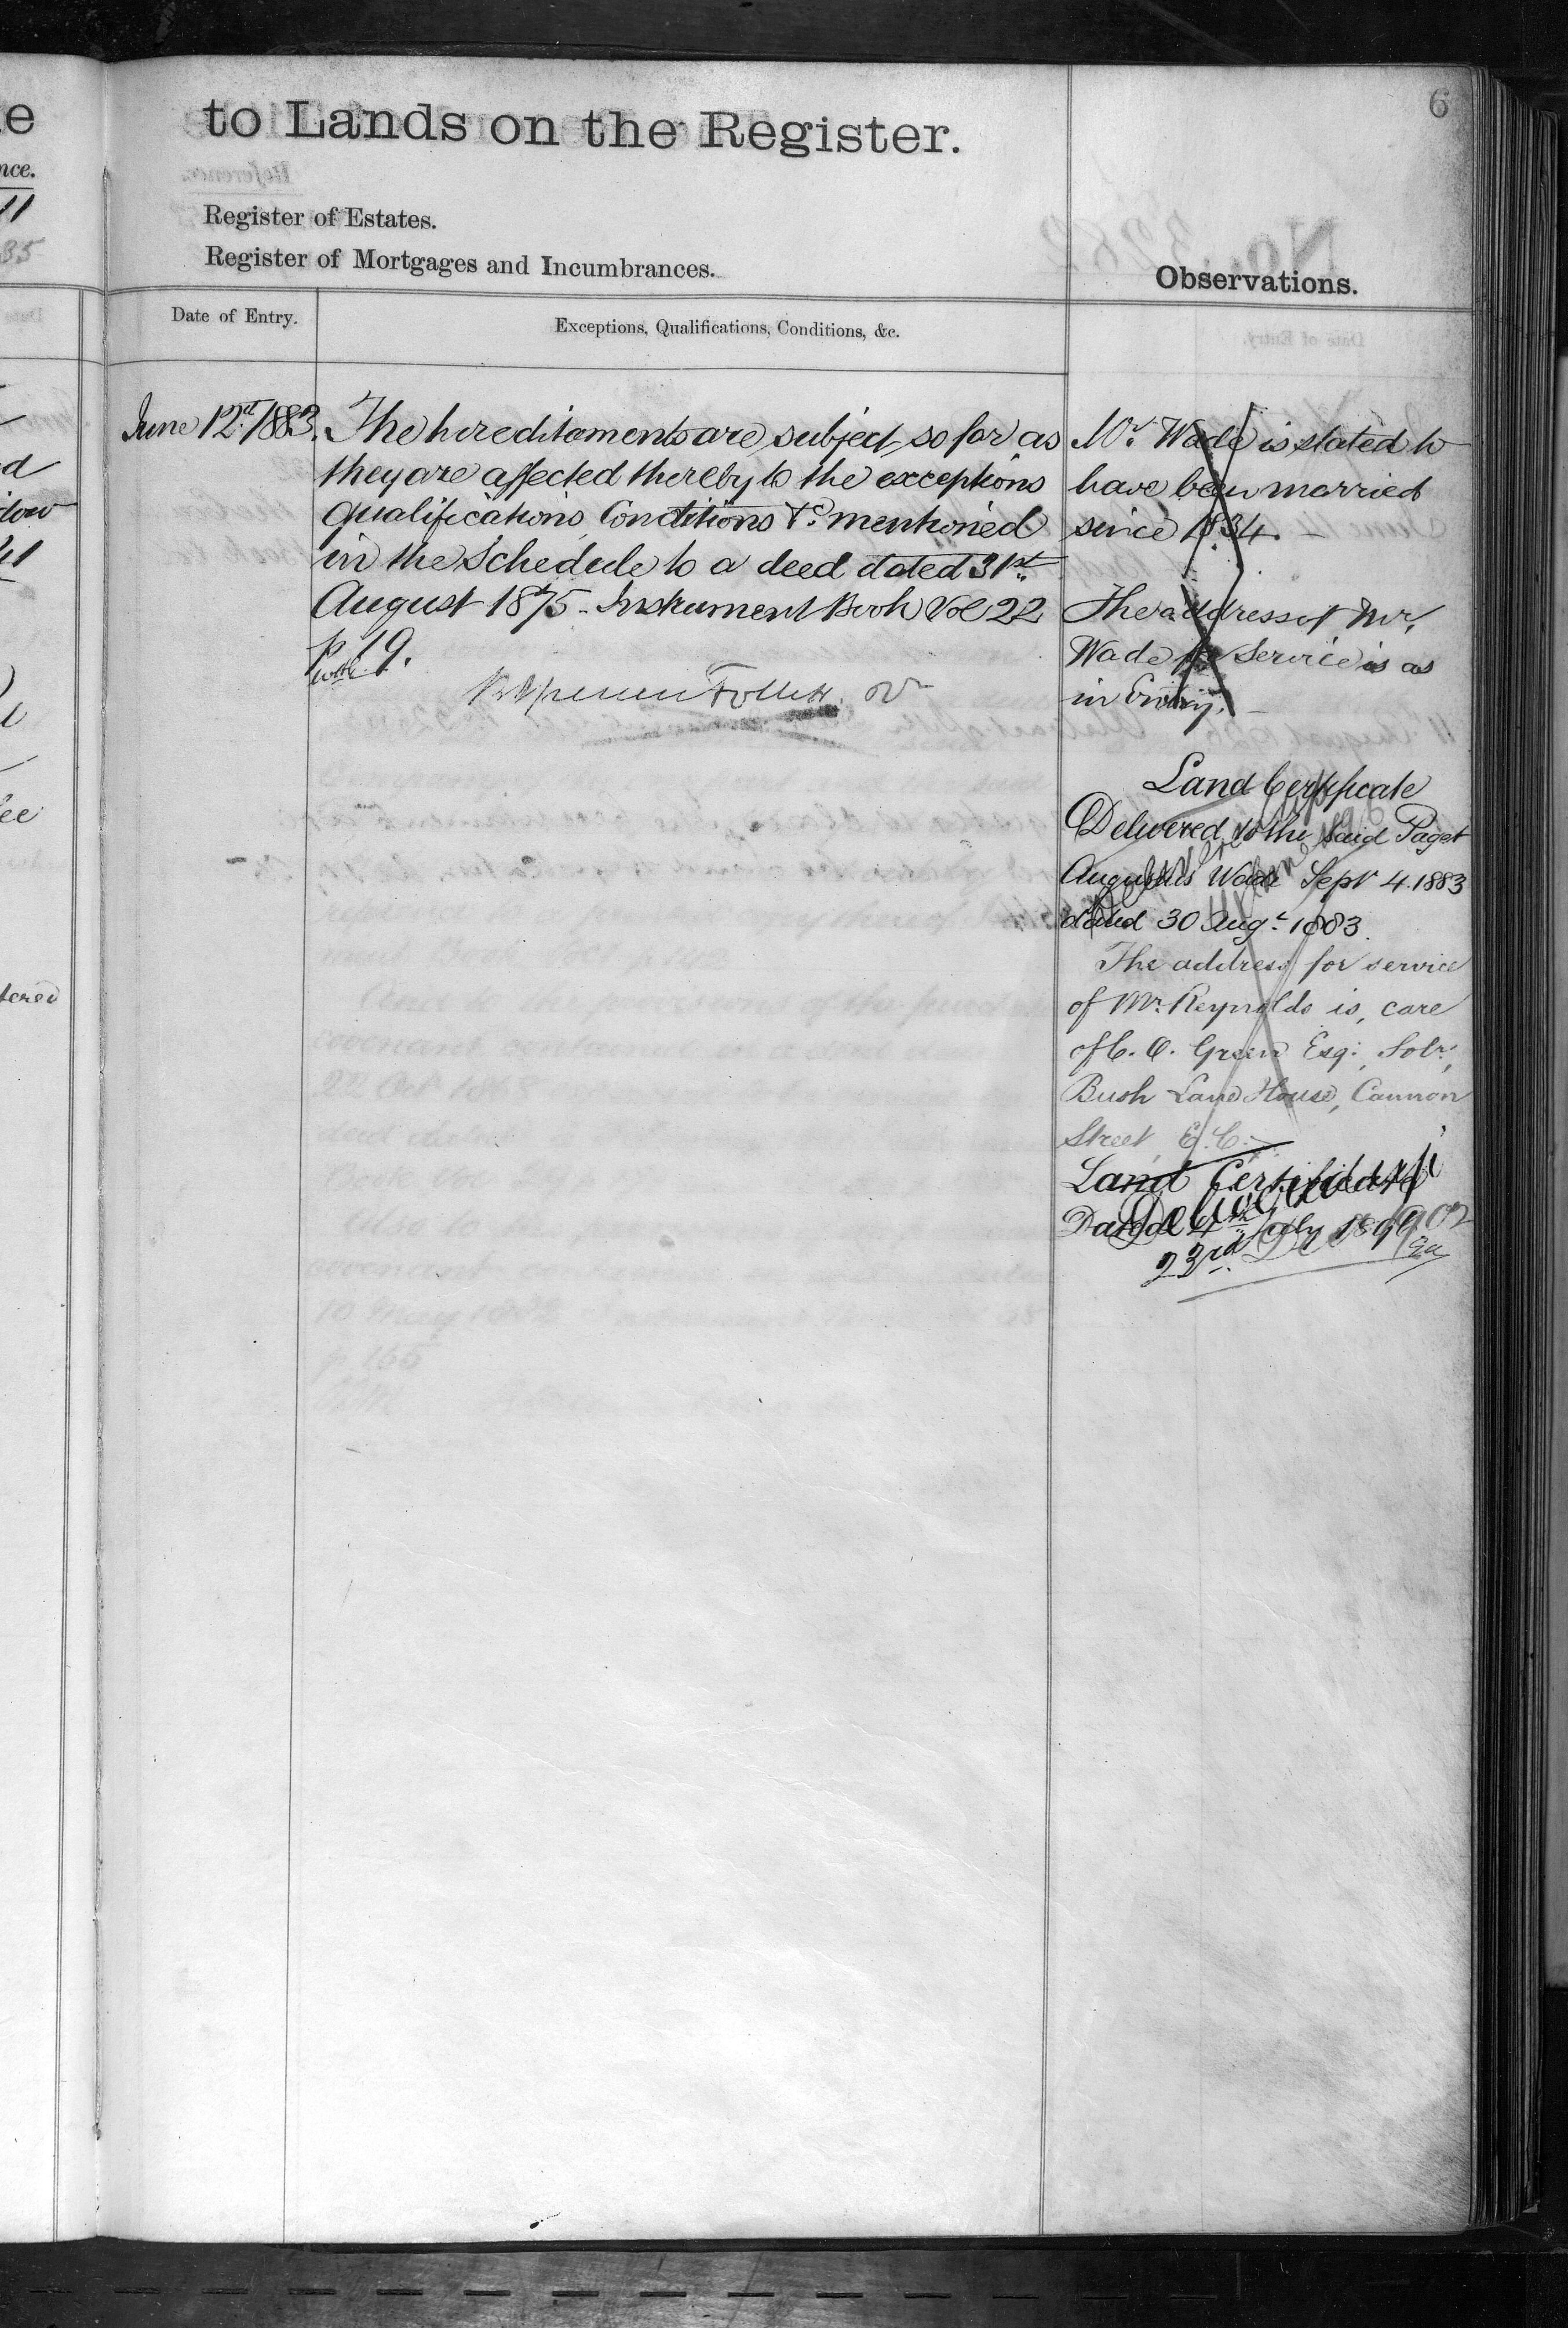 6
to Lands on the Register.
Register of Estates.
Register of Mortgages and Incumbrances.
Observations.
Date of Entry.
Exceptions, Qualifications, Conditions, &c.
June 12th 1883.
The hereditaments are subject so far as
they are affected thereby to the exceptions
qualifications, Conditions &c. mentioned
in the Schedule to a deed dated 31st
August 1875 - Instrument Book Vol 22
p 19.
Follett
Mr. Wade is stated to
have been married
since 1834. -
The address of Mr.
Wade for Service is as
in Entry. -
Land Certificate
Delivered to the said Paget
Augustus Wade Sept 4. 1883
dated 30 Augt. 1883.
The address for service
of Mr. Reynolds is, care
of C. O. Green Esq., Solr.,
Bush Land House, Cannon
Street, E.C. -
Land Certificate
Delivered
Dated 4th July 1899
23rd